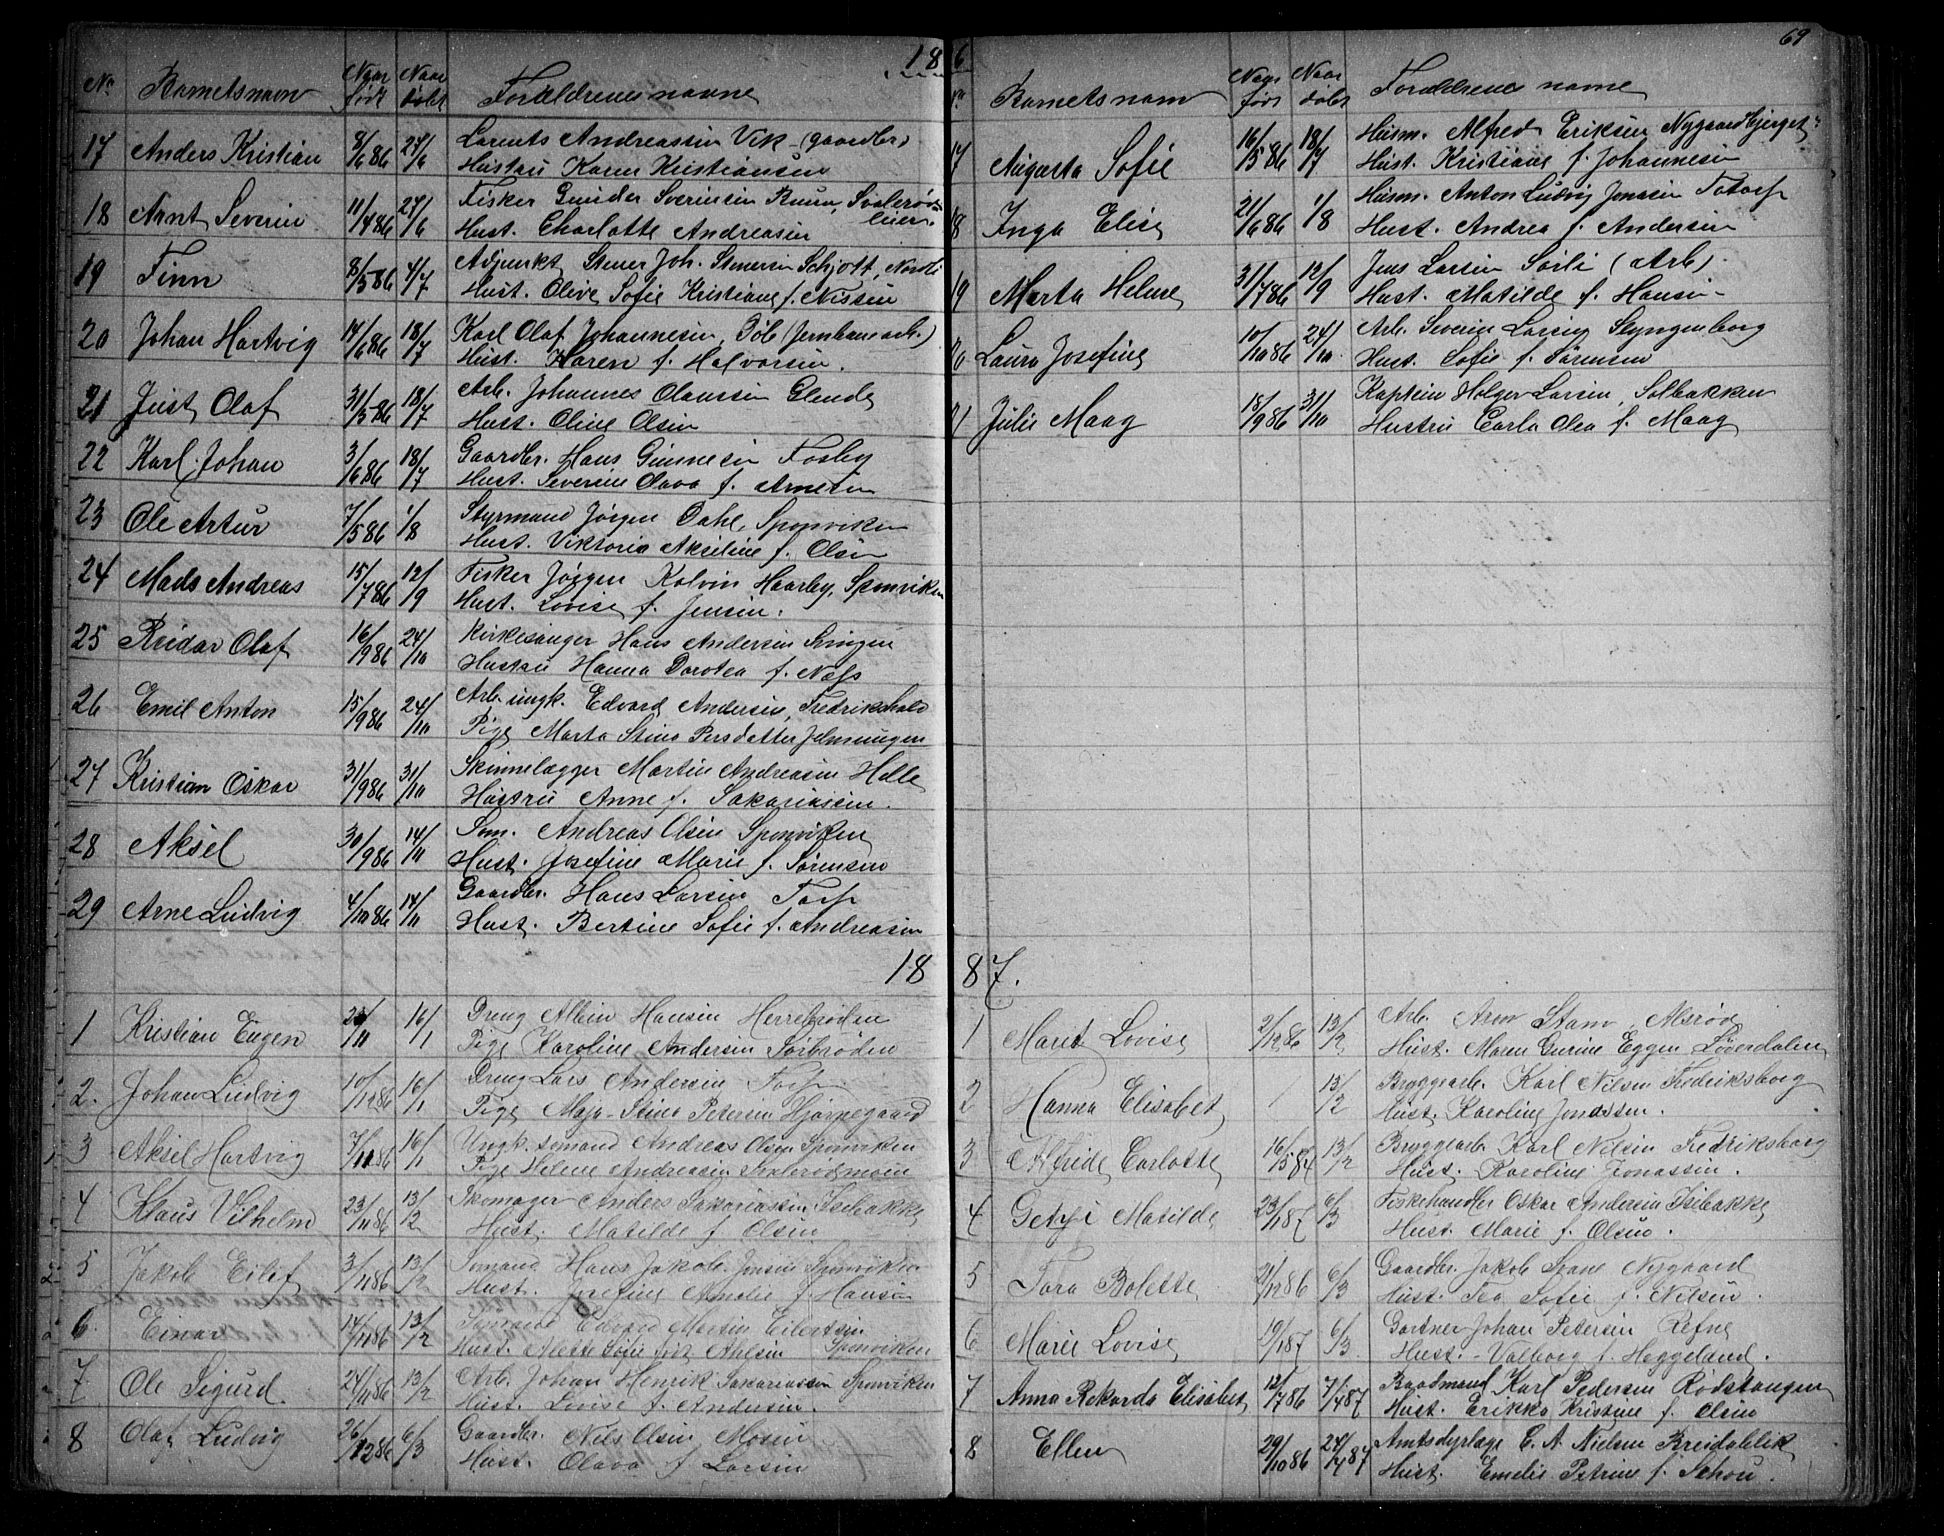 18 6
69
No Barnets navn Naar født Naar døbt Forældrenes navne
17 Anders Kristian 8/6 86 27/6 Laurits Andreassen Vik (gaardbr)
Hustru Karen Kristiansen
18 Arnt Severin 11/4 86 27/6 Fisker Gunder Sverinsen Buun,
Hust. Charlotte Andreasen
19 Finn 8/5 86 4/7 Adjunkt Stener Joh. Stenersen Schjøtt,
Hust. Olive Sofie Kristiane f. Nissen
20 Johan Hartvig 14/6 86 18/7 Karl Olaf Johannesen, Döb (Jernbanearb.)
Hust. Karen f. Halvorsen.
21 Just Olaf 31/5 86 18/7 Arb. Johannes Olaussen Glende
Hust. Oline Olsen
22 Karl Johan 3/6 86 18/7 Gaardbr. Hans Gunnesen Fosby
Hust. Severine Olava f. Arnesen
23 Ole Artur 7/5 86 1/8 Styrmand Jørgen Dahl, Sponviken
Hust. Viktoria Akseline f. Olsen
24 Mads Andreas 15/7 86 12/9 Fisker Jørgen Kolvin Haarby, Sponviken
Hust. Lovise f. Jensen.
25 Reidar Olaf 16/9 86 24/10 Kirkesanger Hans Andersen
Hustru Hanna Dorotea f. Næss
26 Emil Anton 15/9 86 24/10 Arb. ungk. Edvard Andersen, Fredrikshald
Pige Marta Stina Persdatter
27 Kristian Oskar 31/9 86 31/10 Skinnelægger Martin Andreasen Helle
Hustru Anne f. Sakariassen.
28 Aksel 30/9 86 14/11 Søm. Andreas Olsen Sponviken
Hust. Josefine Marie f. Sørensen
29 Arne Ludvig 4/10 86 14/11 Gaardbr. Hans Larsen Torp
Hust. Bertine Sofie f. Andreasen
18 87.
1 Kristian Eugen /11 16/1 Dreng Albin Hansen Herrebrøden
Pige Karoline Andersen Sørbrøden
2. Johan Ludvig 10/12 86 16/1 Dreng Lars Andersen Torp
Pige Maja-Stina Petersen Hjørnegaard
3 Aksel Hartvig 7/11 86 16/1 Ungk. sømand Andreas Olsen Sponviken
Pige Helene Andreasen Svalerødmoen
4 Klaus Vilhelm 23/11 86 13/2 Skomager Anders Sakariassen, Isebakke
Hust. Matilde f Olsen
5 Jakob Eilef 3/11 86 13/2 Sømand Hans Jakob Jensen Sponviken
Hust. Josefine Amalie f. Hansen
6 Einar 14/11 86 13/2 Sømand Edvard Martin Eilertsen Sponviken
Hust. Alette Sofie født Ahlsen
7 Ole Sigurd. 24/11 86 13/2 Arb. Johan Henrik Sakariassen Sponviken
Hust. Lovise f. Andersen.
8 Olaf Ludvig 26/12 86 6/3 Gaardbr. Nils Olsen Mosen
Hust. Olava f Larsen
No Barnets navn Naar født Naar døbt Forældrenes navne
17 Augusta Sofie 16/5 86 18/7 Husm. Alfred Eriksen Nygaardbjerget
Hust. Kristiane f. Johannesen
18 Inga Elise 21/6 86 1/8 Husm. Anton Ludvig Jensen Fotorp
Hust. Andrea f. Andersen
19 Marta Helene 31/7 86 12/9 Jens Larsen Sørli (Arb).
Hust. Matilde f. Hansen
20 Laura Josefine 10/10 86 24/10 Arb. Severin Lauritz
Hust. Sofie f. Sørensen
21 Julie Maag 18/9 86 31/10 Kaptein Holger Larsen, Solbakken
Hustru Carla Olea f. Maag
1 Marit Lovise 2/12 86 13/2 Arb. Aron Stam
Hust. Maren Gurine Eggen
2 Hanna Elisabet / 13/2 Bryggearb. Karl Nilsen Fredriksborg
Hust. Karoline Jonassen.
3 Alfride Carlotte 16/5 84 13/2 Bryggearb Karl Nilsen Fredriksborg
Hust. Karoline Jonassen.
4 Matilde 23/1 87 6/3 Fiskehandler Oskar Andersen Isebakke
Hust. Marie f. Olsen.
5 Tora Bolette 21/12 86 6/3 Gaardbr. Jakob Svane Nygaard
Hust. Tea Sofie f. Nilsen.
6 Marie Lovise 19/1 87 6/3 Gartner Johan Petersen Refne
Hust. - Valborg f. Heggeland.
7 Anna Rekorda Elisabet 12/7 86 7/4 87 Baadmand Karl Pedersen Rødstangen
Hust. Erikka Kristine f. Olsen
8 Ellen 29/10 86 24/4 87 Amtsdyrlæge E. A. Nielsen Breidablik
Hust. Emelie Petrine f. Schou.